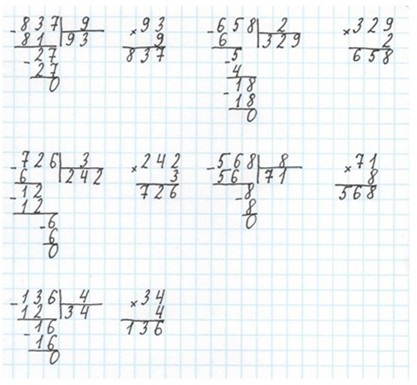 -837|9 ×93 -658|2 ×329
81 |93 9 6 |329 2
-27 837 -5 658
27 4
0 -18
-18
0
-726|3 ×242 -568|8 ×71
6 |242 3 56 |71 8
-12 726 -8 568
-12 8
-6 0
6
0
-136|4 ×34
12 |34 4
-16 136
-16
0